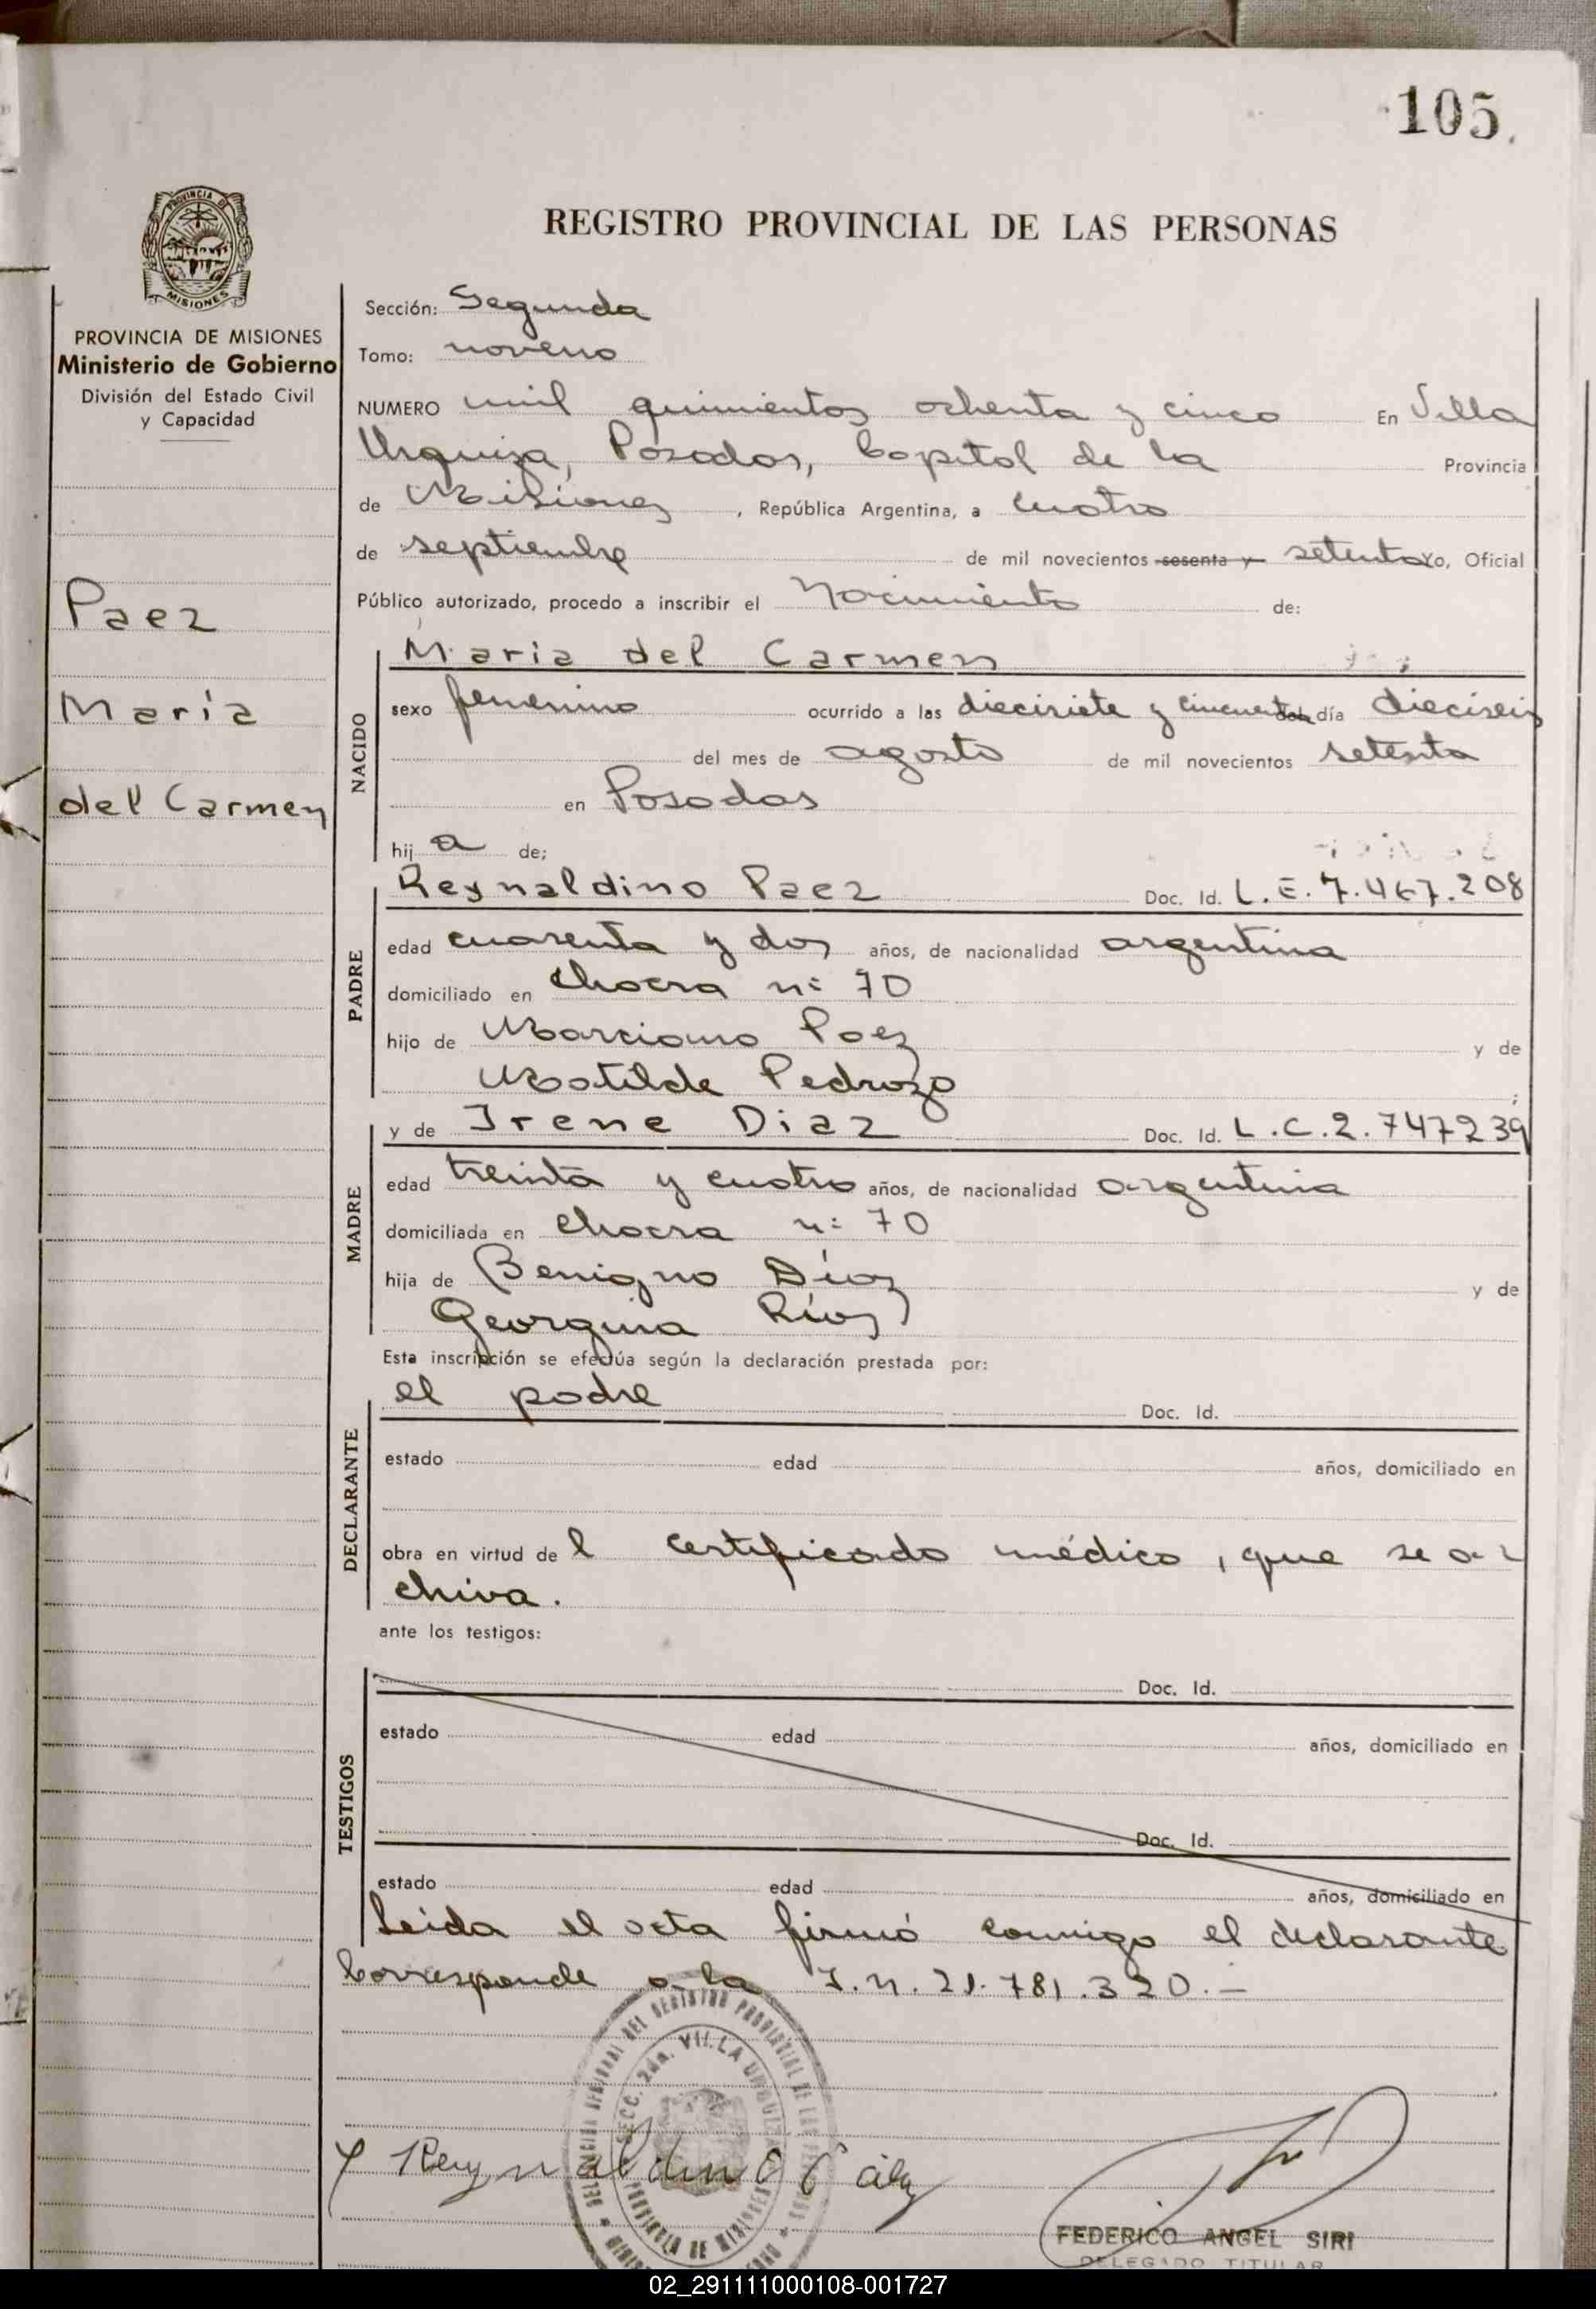 105
PROVINCIA DE
MISIONES
PROVINCIA DE MISIONES
Ministerio de Gobierno
División del Estado Civil
y Capacidad
Paez
María
del Carmen
REGISTRO PROVINCIAL DE LAS PERSONAS
Sección: Segunda
Tomo: noveno
NUMERO mil quinientos ochenta y cinco En Villa
Urquiza, Posadas, Capital de la Provincia
de Misiones, República Argentina, a cuatro
de septiembre de mil novecientos sesenta y setenta Yo, Oficial
Público autorizado, procedo a inscribir el Nacimiento de:
NACIDO
Maria del Carmen
sexo femenino ocurrido a las diecisiete y cincuenta día dieciseis
del mes de agosto de mil novecientos setenta
en Posadas
hij a de;
PADRE
Reynaldino Paez Doc. Id. L.E. 7.467.208
edad cuarenta y dos años, de nacionalidad argentina
domiciliado en chacra nº 70
hijo de Marciano Paez y de
Matilde Pedrozo ;
MADRE
y de Irene Diaz Doc. Id. L.C. 2.747239
edad treinta y cuatro años, de nacionalidad argentina
domiciliada en chacra nº 70
hija de Benigno Díaz y de
Georgina Ríos
Esta inscripción se efectúa según la declaración prestada por:
DECLARANTE
el padre Doc. Id.
estado edad años, domiciliado en
obra en virtud de l certificado médico, que se ar
chiva.
ante los testigos:
TESTIGOS
Doc. Id.
estado edad años, domiciliado en
Doc. Id.
estado edad años, domiciliado en
Leída el acta firmó conmigo el declarante
Corresponde a la I.N. 21.781.320.-
DEL REGISTRO PROVINCIAL DE LAS PERSONAS
SECC. 2da. VILLA URQUIZA
PROVINCIA DE MISIONES
Reynaldino Páez
FEDERICO ANGEL SIRI
DELEGADO TITULAR
02_291111000108-001727